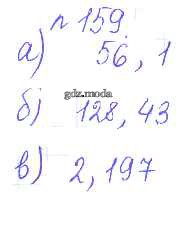 n 159.
а) 56, 1
gdz.moda
б) 128, 43
в) 2, 197